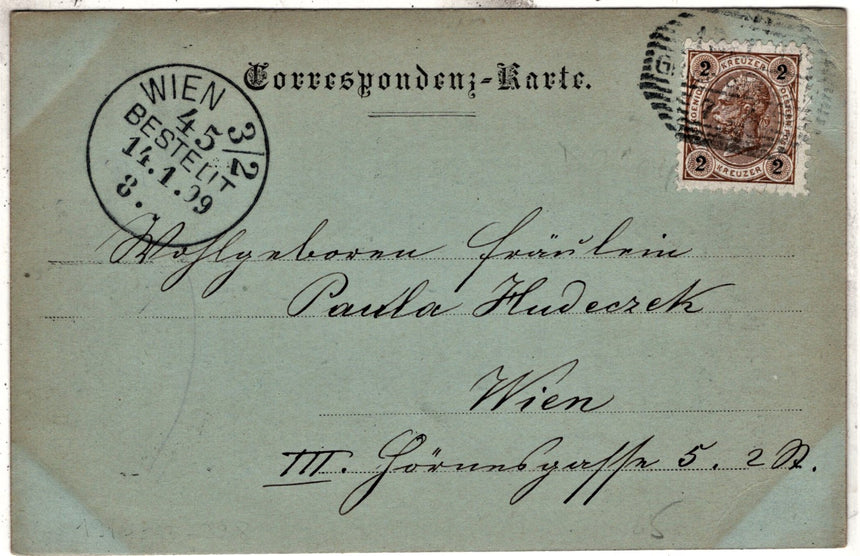 Correspondenz-Karte.
WIEN 3/2
45
BESTELLT
14.1.99
8.
2 KREUZER 2
2 KREUZER 2
Wohlgeboren Fräulein
Paula Hudeczek
Wien
III. Hörnesgasse 5. 2 St.